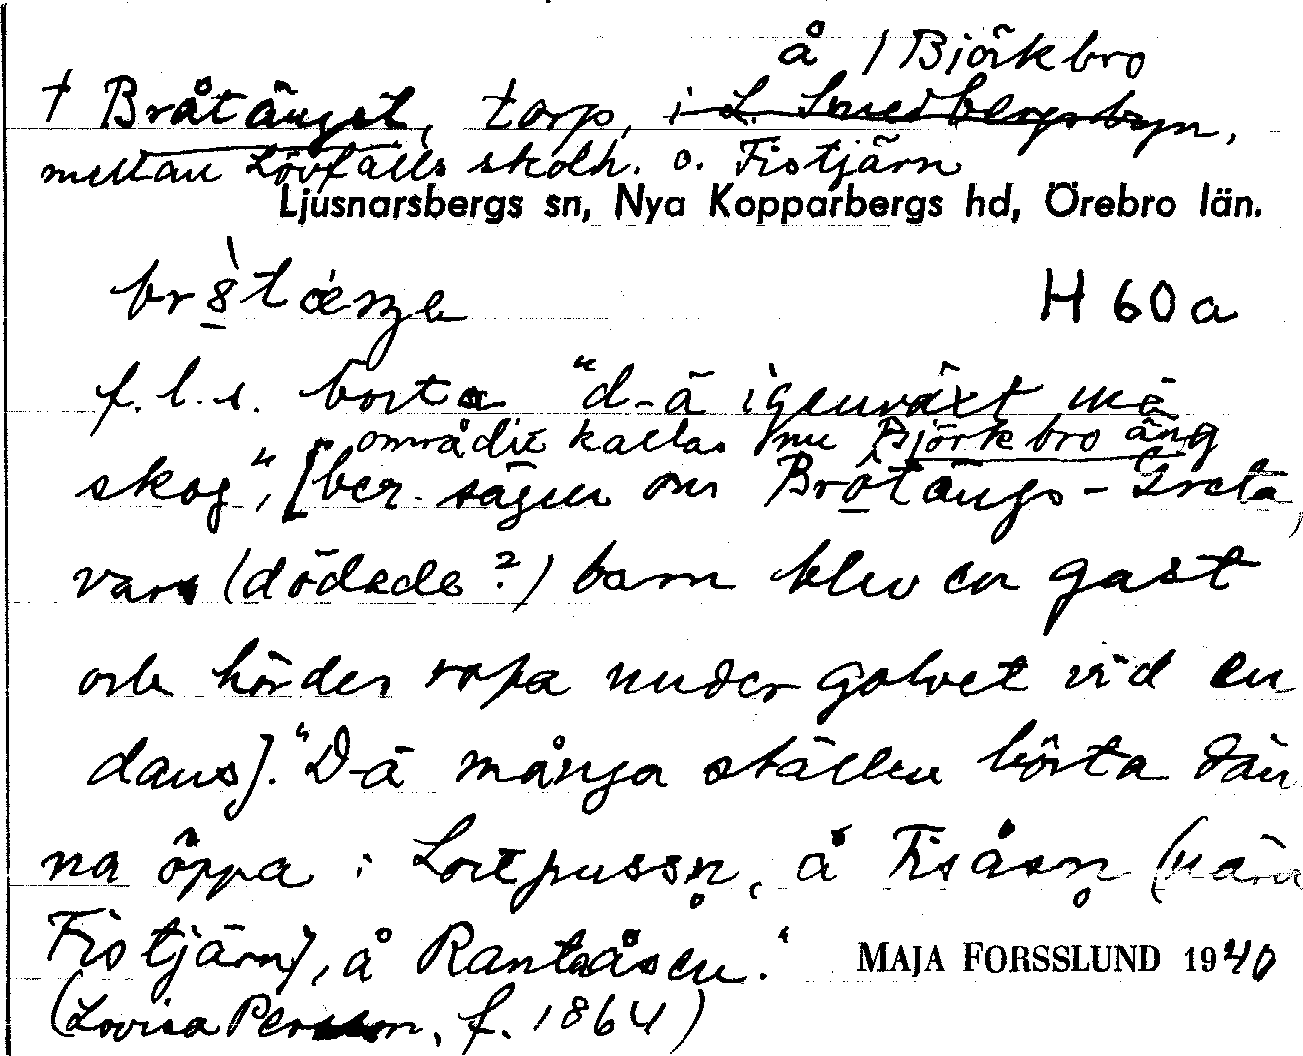 å / Björkbro
† Bråtänget, torp, i L. Smedbergsbyn,
mellan Lövfalls skolh. o. Fistjärn
Ljusnarsbergs sn, Nya Kopparbergs hd, Örebro län.
H 60 a
f. l. s. borta "d-ä igenväxt mä
området kallas nu Björkbro äng
skog", [ber. sägen om Bråtängs-Greta,
vars (dödade?) barn blev en gast
och hördes ropa under golvet vid en
dans]. "D-ä många ställen börta dän
na öppa i Lortpussn, å Fisåsn (nära
Fistjärn), å Rantåsen."
MAJA FORSSLUND 1940
(Lovisa Persson, f. 1864)